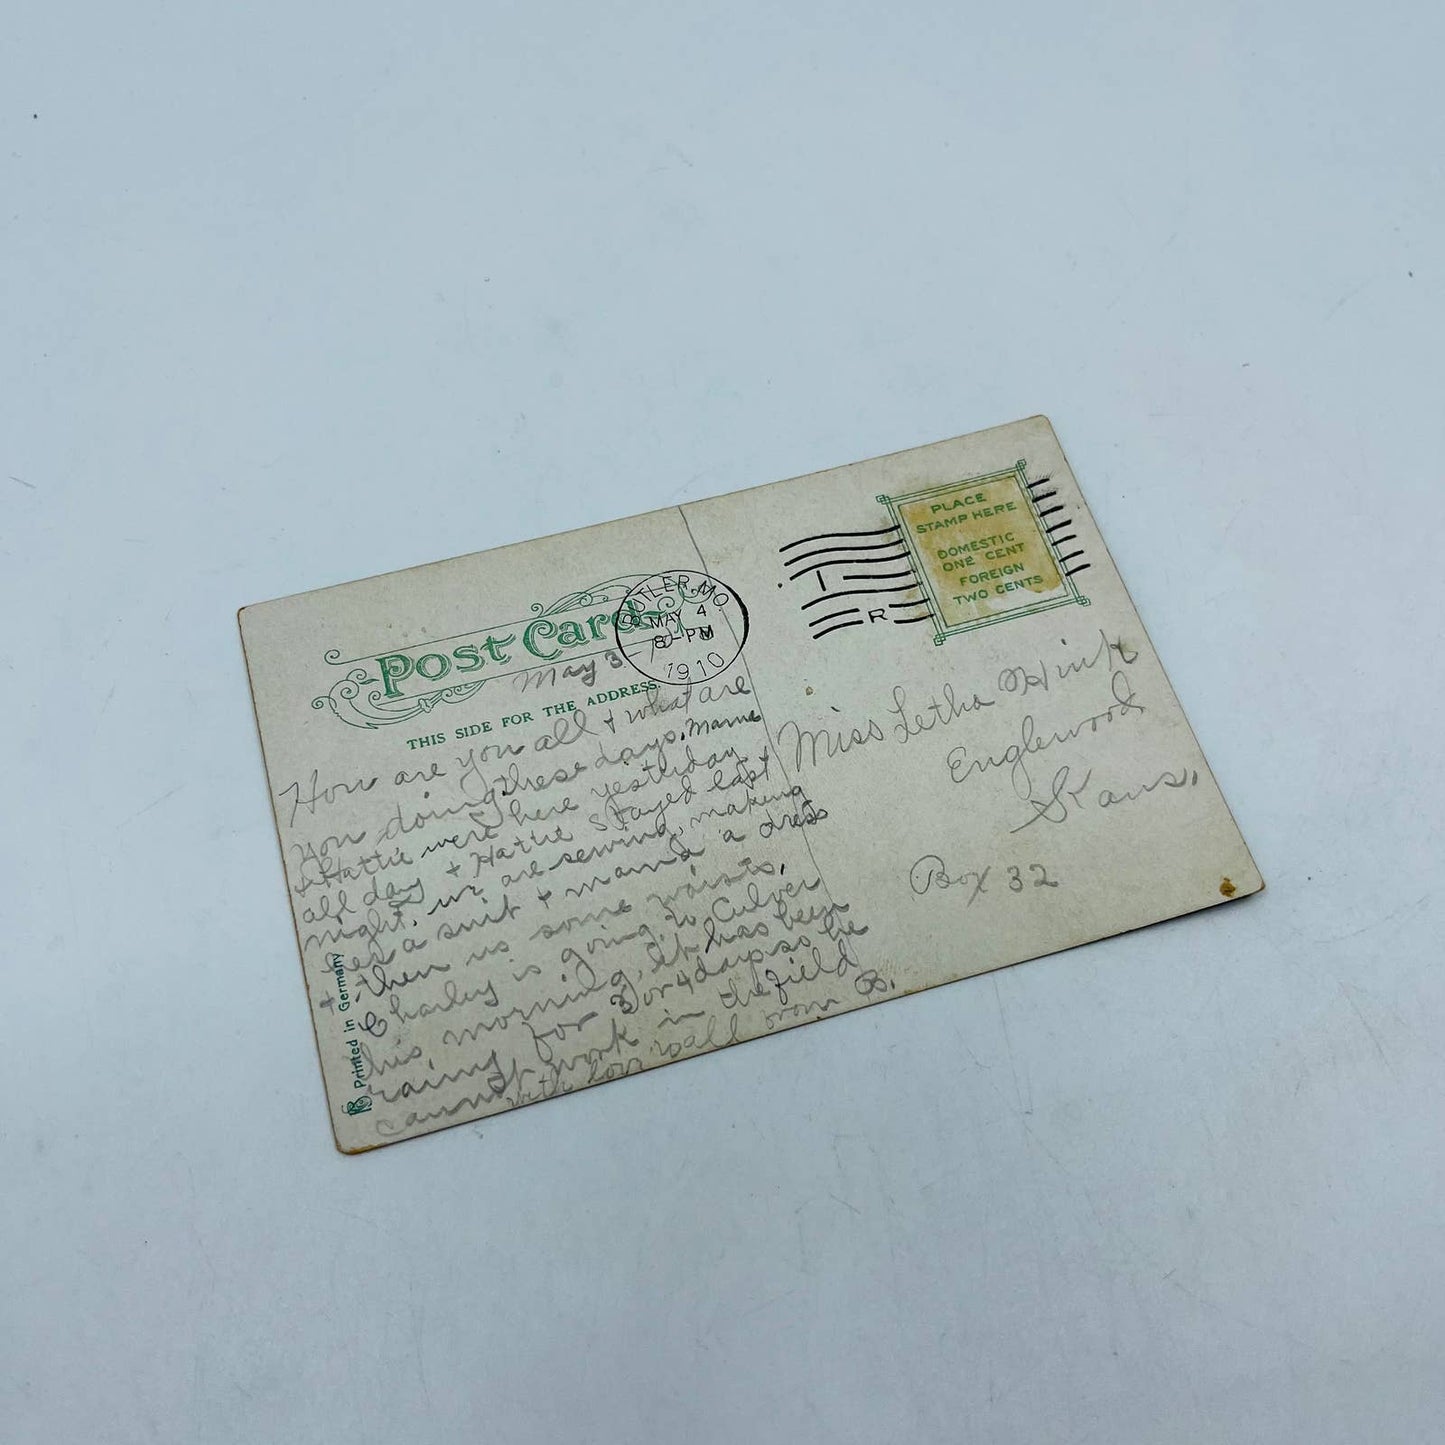 Post Card
May 3 - 10
THIS SIDE FOR THE ADDRESS.
How are you all + what are
you doing these days. Mame
+ Hattie were here yesterday
all day + Hattie stayed last
night. we are sewing, making
her a suit + mama a dress
+ then us some waists.
Charley is going to Culver
this morning. It has been
rainy for 3 or 4 days so he
cannot work in the field
with love to all from B.
Printed in Germany
BUTLER, MO
MAY 4
8-PM
1910
PLACE
STAMP HERE
DOMESTIC
ONE CENT
FOREIGN
TWO CENTS
I
R
Miss Letha Hink
Englewood
Kans.
Box 32